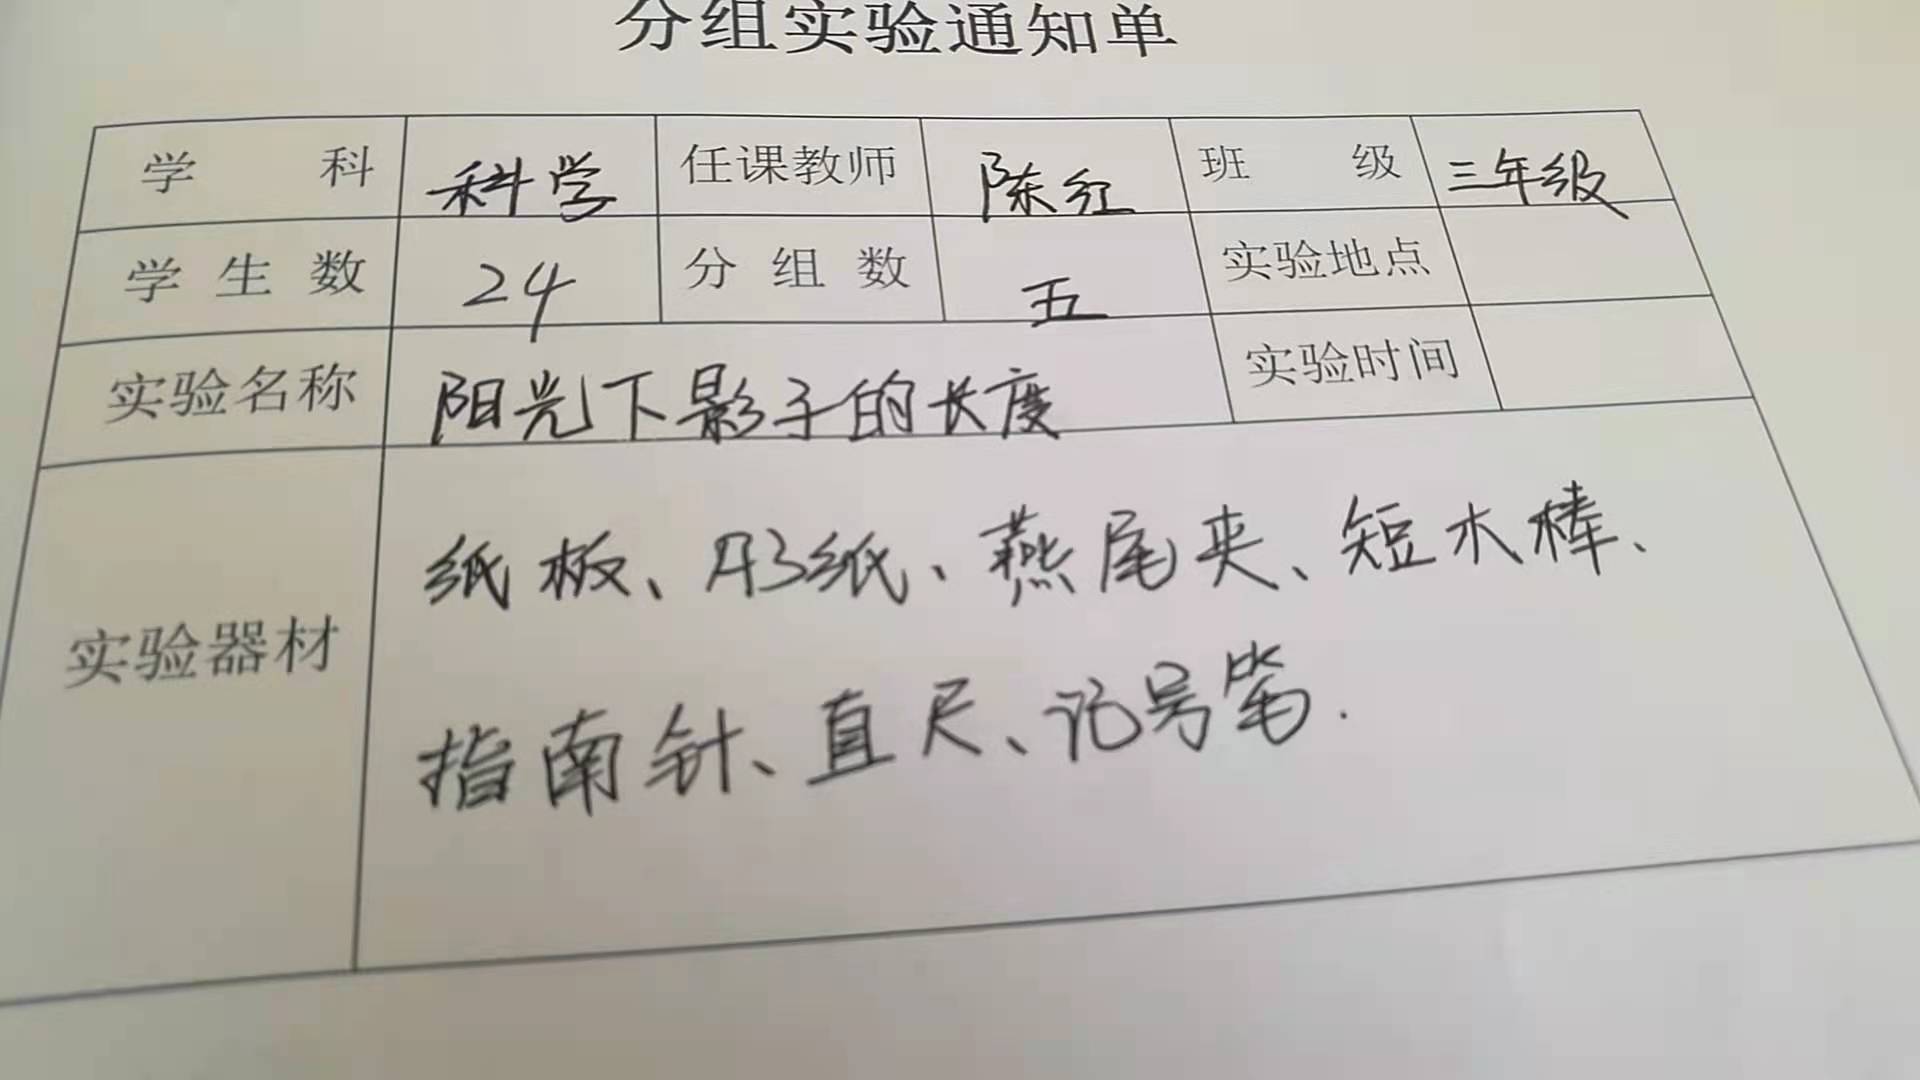 分组实验通知单
学 科 科学 任课教师 陈红 班 级 三年级
学生数 24 分组数 五 实验地点
实验名称 阳光下影子的长度 实验时间
纸板、 纸、燕尾夹、短木棒、
实验器材
指南针、直尺、记号笔.